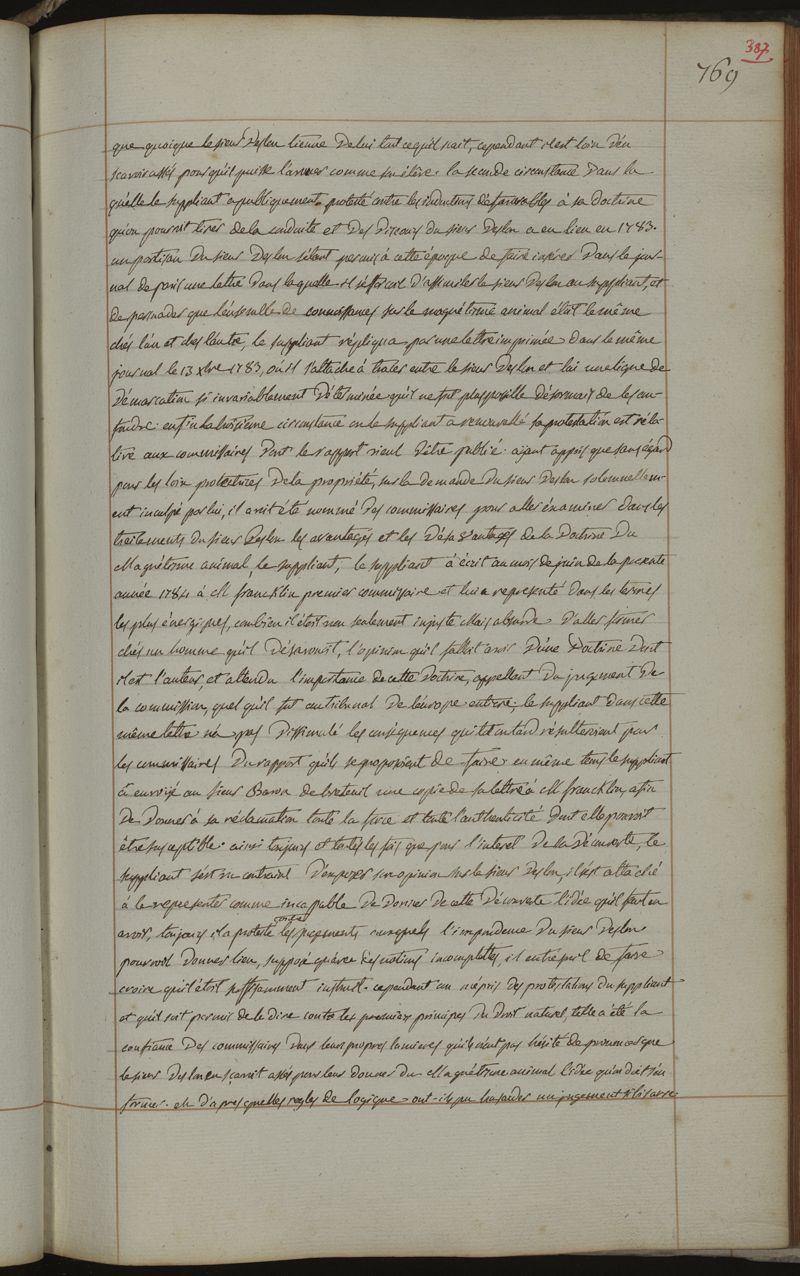 387
769
que quoique le sieur Deslon tienne de lui tout ce qu'il scait, cependant il est loin d'en
scavoir assés pour qu'il puisse l'avouer comme son élève. la seconde circonstance dans la
quelle le suppliant a publiquement protesté contre les inductions défavorables à sa doctrine
qu'on pourroit tirer de la conduite et des discours du sieur Deslon a eu lieu en 1783.
un partisan du sieur Deslon s'étant permis à cette époque de faire insérer dans le jour-
nal de paris une lettre dans laquelle il s'efforcoit d'assimiler le sieur Deslon au suppliant, et
de persuader que l'ensemble de connoissances sur le magnétisme animal étoit le même
chés l'un et chés l'autre, le suppliant répliqua par une lettre imprimée dans le même
journal le 13 xbre 1783, où il s'attache à tracer entre le sieur Deslon et lui une ligne de
démarcation si invariablement déterminée qu'il ne fut plus possible désormais de les con-
fondre. enfin la troisieme circonstance où le suppliant a renouvellé sa protestation est rela-
tive aux commissaires dont le rapport vient d'être publié. ajant appris que sans égard
pour les loix protectrices de la propriété, sur la demande du sieur Deslon solemnellem-
ent inculpé par lui, il avoit été nommé des commissaires pour aller examiner dans les
traitements du sieur Deslon les avantages et les désavantages de la doctrine du
Magnétisme animal, le suppliant, le suppliant à écrit au mois de juin de la presente
année 1784 à M francklin premier commissaire et lui a representé dans les termes
les plus énergiques, combien il étoit non seulement injuste Mais absurde d'aller former
chés un homme qu'il désavouoit, l'opinion qu'il falloit avoir d'une doctrine dont
il est l'auteur, et attendu l'importance de cette doctrine, appellant du jugement de
la commission, quel qu'il fut au tribunal de l'europe entiere; le suppliant dans cette
même lettre n'a pas dissimulé les conséquences qui tôt ou tard résulteroient pour
les commissaires du rapport qu'ils se proposoient de faire. en même tems le suppliant
a envoyé au sieur Baron de breteuil une copie de sa lettre à M francklin, afin
de donner à sa réclamation toute la force et toute l'authenticité dont elle pouvoit
être susceptible. ainsi toujours et toutes les fois que pour l'interet de sa découverte, le
suppliant s'est vu contraint d'exposer son opinion sur le sieur Deslon, il s'est attaché
à le representer comme incapable de donner de cette découverte l'idée qu'il faut en
avoir, toujours il a protesté contre les jugements auxquels l'imprudence du sieur Deslon
pourroit donner lieu, supposé qu'avec des notions incomplettes, il entreprit de faire
croire qu'il étoit suffisamment instruit. cependant au mépris des protestations du suppliant
et qu'il soit permis de le dire contre les premiers principes du droit naturel, telle a été la
confiance des commissaires dans leurs propres lumieres qu'ils n'ont pas hésité de prononcer que
le sieur Deslon en scavoit assés pour leur donner du Magnétisme animal l'idée qu'on doit s'en
former. et d'apres quelles regles de logique ont-ils pu hasarder un jugement si bisarre.